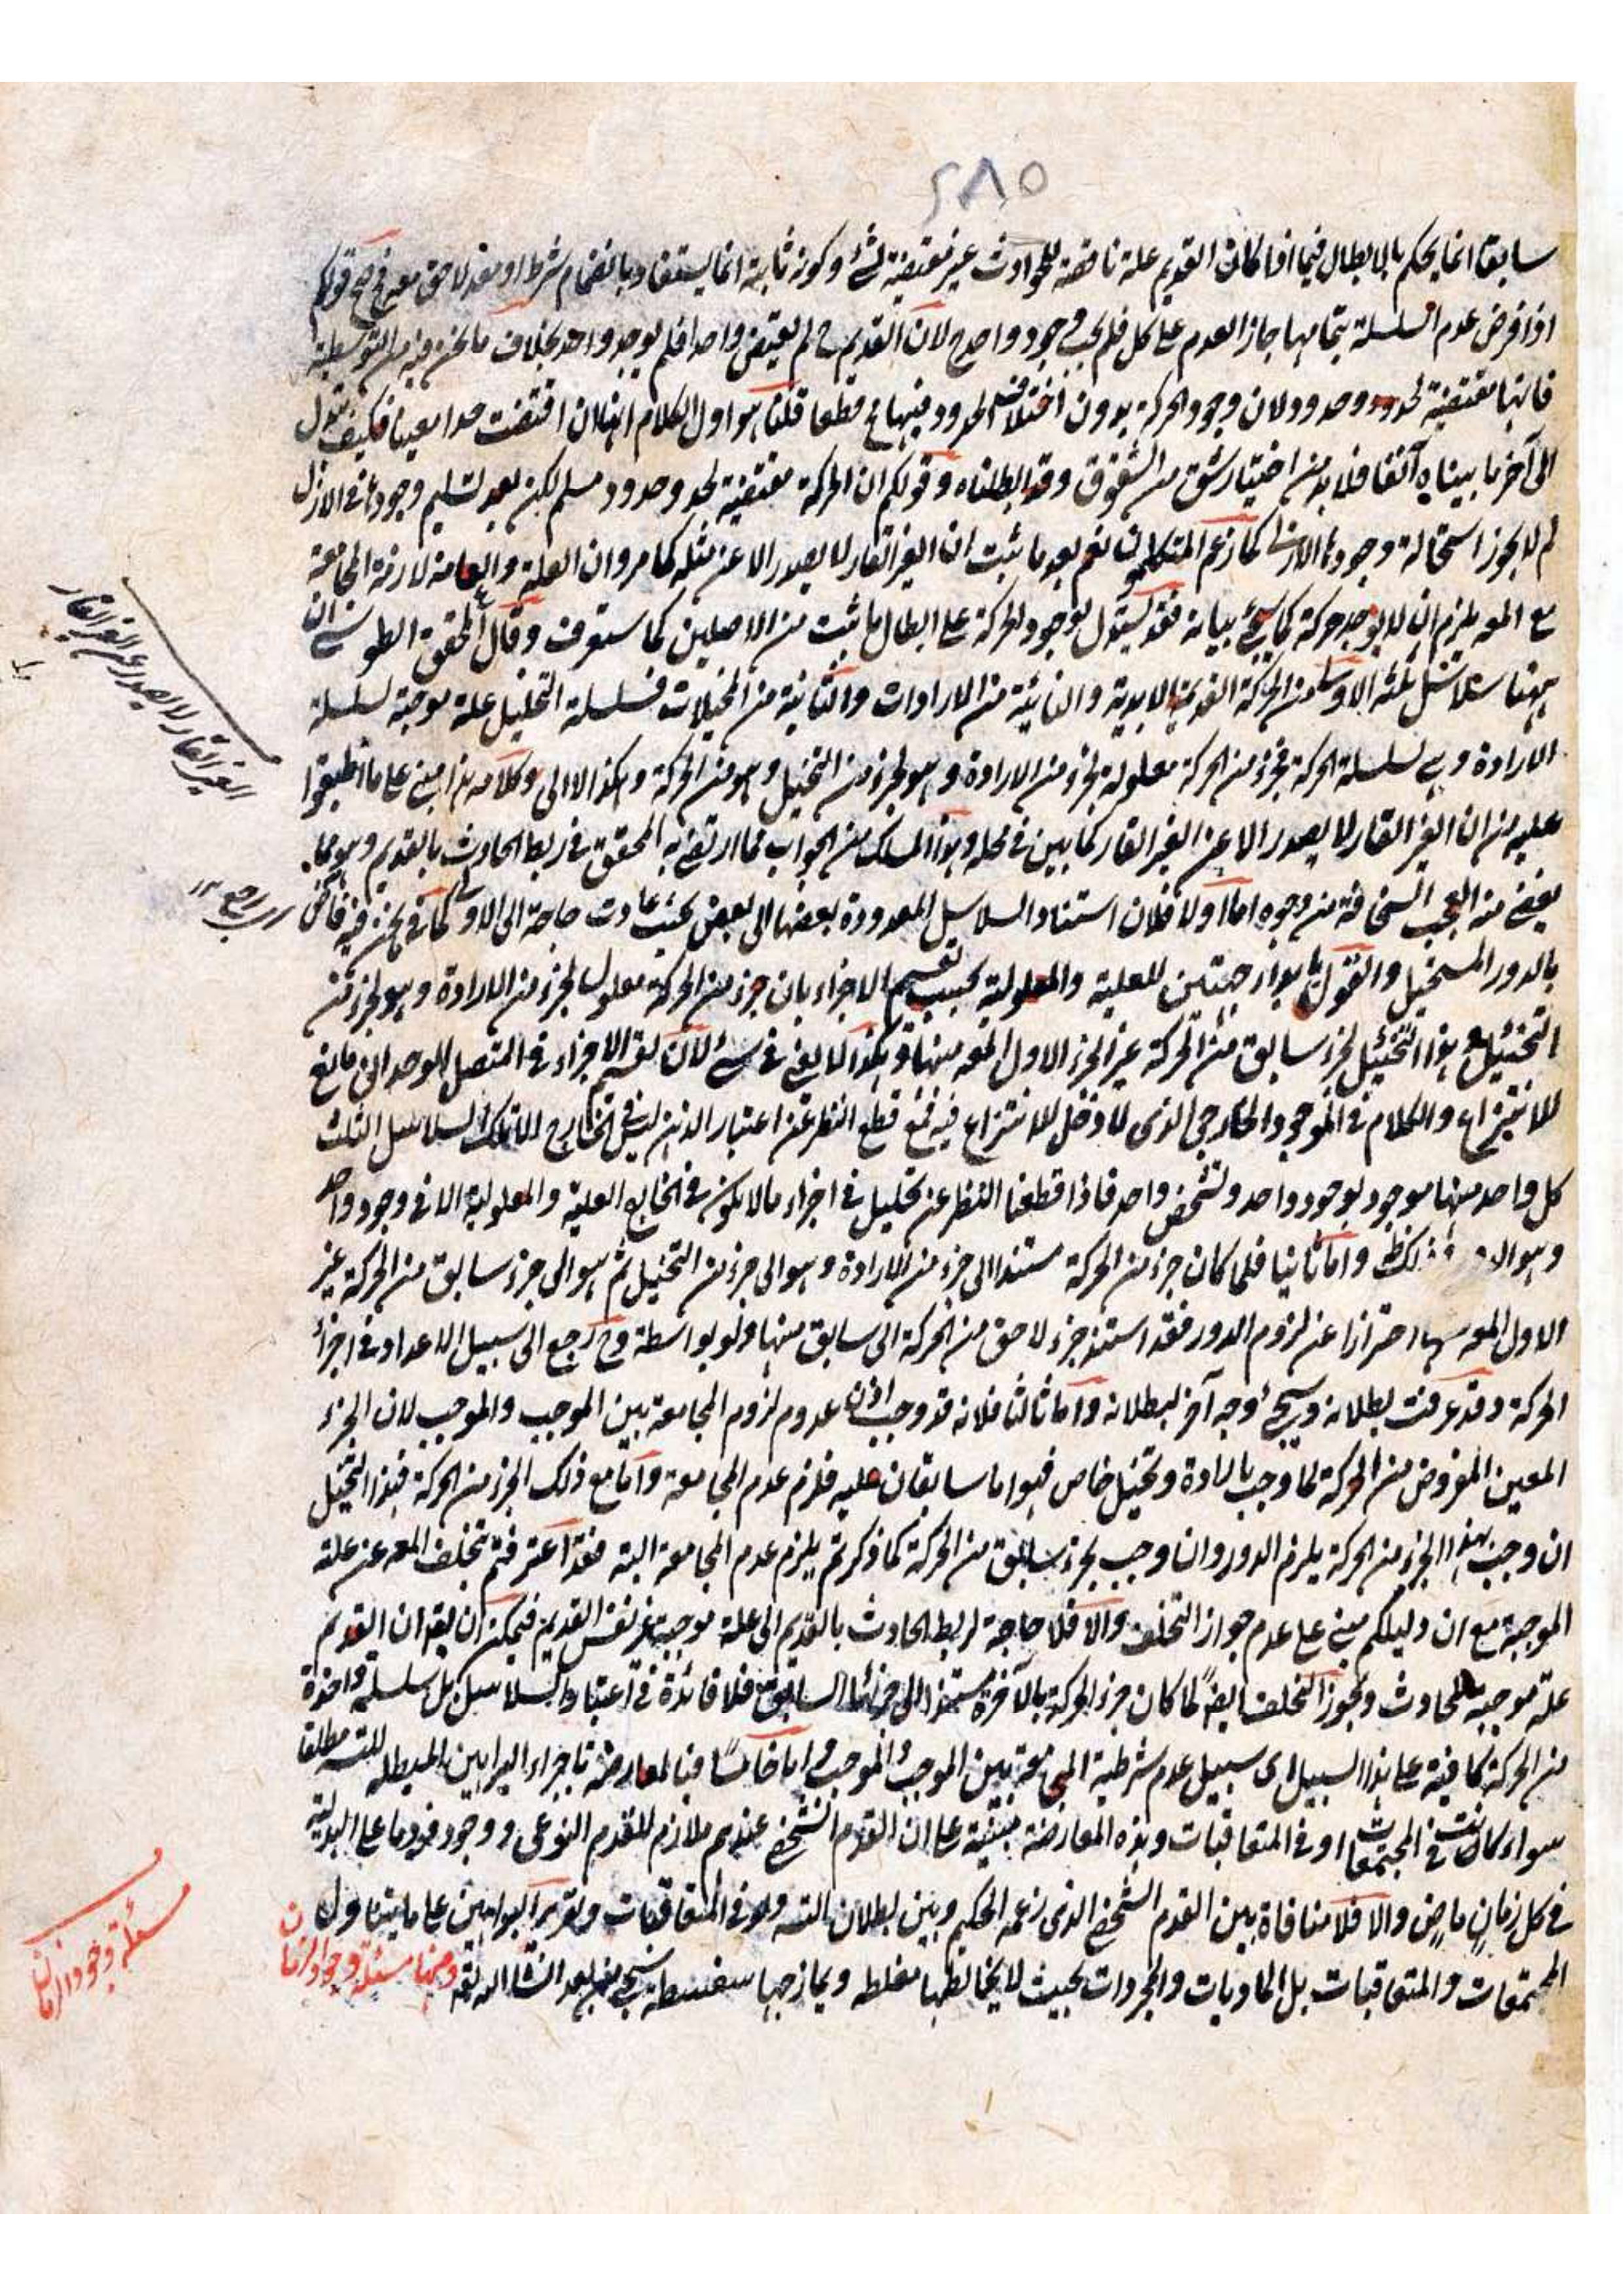 ٢٨٥
سابقا انما يحكم بالابطال فيما اذا كانت القديم علة ناقصة للحوادث غير مقتضية لشئ وكونه ثابتة انما يستفاد بانضمام شرط او معد لاحق معه فح صح قولكم
اذا فرض عدم السلسلة بتمامها جاز العدم على كل فلم يجب وجود واحد ح لان القديم ح لم يقتض واحدا فلم يوجد واحد بخلاف ما نحن فيه من التوسطية
فانها مقتضية لحدود وحدود لان وجود الحركة بدون اختلاف الحدود فيها مح قطعا قلنا هو اول الكلام انها لان اقتضت حدا معينا فكيف تقول
الى آخر ما بيناه آنفا فلا بد من اختيار شق من الشقوق وقد ابطلناه وقولكم ان الحركة مقتضية لحد وحدود مسلم لكن بعد تسليم وجودها فى الازل
لم لا يجوز استحالة وجودها الازلى كما زعم المتكلمون نعم بعد ما يثبت ان الغير القار لا يصدر الا عن مثله كما مر وان العلة والعامة لازمة المجامعة
مع المعه يلزم ان لا يوجد حركة كما سيجئ بيانه فقد يستدل بوجود الحركة على ابطال ما ثبت من الاصلين كما ستعرف وقال المحقق الطوسى ان
ههنا سلاسل ثلثه الاولى من الحركة القديمة الابدية والثانية من الارادات والثانية من التخيلات فسلسلة التخيل علة موجبة لسلسلة
الارادة وهى لسلسلة الحركة فجزء من الحركة معلولة لجزء من الارادة وهو لجزء من التخيل وهو من الحركة وهكذا الا الى وكلامه هذا مبنى على ما اطبقوا
عليه من ان الغير القار لا يصدر الا عن الغير القار كما بين فى محله وهذا المسلك من الجواب مما ارتضى به المحقق فى ربط الحادث بالقديم وهو مما
يفضى منه العجب السخافة من وجوه اما اولا فلان استناد السلاسل المعدودة بعضها الى بعض بحيث عادت حاجة الى الاولى كما فى نحن فيه فانض
بالدور المستحيل والقول بابداء جهتين للعلية والمعلولية بحسب تقسيم الاجزاء بان جزء من الحركة معلول لجزء من الارادة وهو لجزء من
التخييل وهذا التخييل لجزء سابق من الحركة غير الجزء الاول المعه منها وهكذا لا يغنى فى شئ لان تقسيم الاجزاء فى المتصل الوحدانى تابع
للانتزاع والكلام فى الموجود الخارجى الذى لا دخل للانتزاع فيه فمع قطع النظر عن اعتبار الذهن ليس فى الخارج الا تلك السلاسل الثلث
كل واحد منها موجود بوجود واحد وتشخص واحد فاذا قطعنا النظر عن تحليل فى اجزاء مالا يكون فى الخارج العلية والمعلولية الا فى وجود واحد
واما ثانيا فلما كان جزء من الحركة مستندا الى جزء من الارادة وهو الى جزء من التخييل ثم هو الى جزء سابق من الحركة غير
الاول المعه منها احترازا عن لزوم الدور فقد استند جزء لاحق من الحركة الى سابق منها ولو بواسطة وح رجع الى سبيل الاعداد فى اجزاء
الحركة وقد عرفت بطلانه وسيجئ وجه آخر لبطلانه واما ثالثا فلانه قد وجب اذن عدم لزوم المجامعة بين الموجب والموجب لان الجزء
المعين المفروض من الحركة لما وجب بارادة وتخيل خاص فهو اما سابقان عليه فلزم عدم المجامعة واما مع ذلك الجزء من الحركة فهذا التخيل
ان وجب بهذا الجزء من الحركة يلزم الدور وان وجب بجزء سابق من الحركة كما ذكرتم يلزم عدم المجامعة البته فقد اعترفتم بتخلف المعه عن علته
الموجبة مع ان دليلكم مبنى على عدم جواز التخلف والا فلا حاجة لربط الحادث بالقديم الى علة موجبة غير نفس القديم فيمكن ان يقه ان القديم
علة موجبة للحادث ويجوز التخلف ايضً لما كان جزء الحركة بالآخرة مستندا الى جزئها السابق فلا فائدة فى اعتبار السلاسل بل سلسلة واحدة
من الحركة كافية على هذا السبيل اى سبيل عدم شرطية المجامعة بين الموجب والموجب واما خامسًا فبالمعارضة باجراء البراهين المبطلة للتسه مطلقا
سواء كانت فى المجتمعات او فى المتعاقبات وهذه المعارضة مبنية على ان القدم الشخصى عندهم ملازم للقدم النوعى ووجود فرد ما على البدلية
فى كل زمانٍ ماضٍ والا فلا منافاة بين القدم الشخصى الذى زعمه الحكيم وبين بطلان التسه ولو فى المتعاقبات وتقرير البراهين على ما يتناول
المجتمعات والمتعاقبات بل الماديات والمجردات بحيث لا يخالطها مغلطه ويمازجها سفسطة سيجئ منا بعد انشاء الله تعه ومنها مسئلة وجود الزمان
الغير القار لا يصدر عن الغير القار
مسئلة وجود الزمان